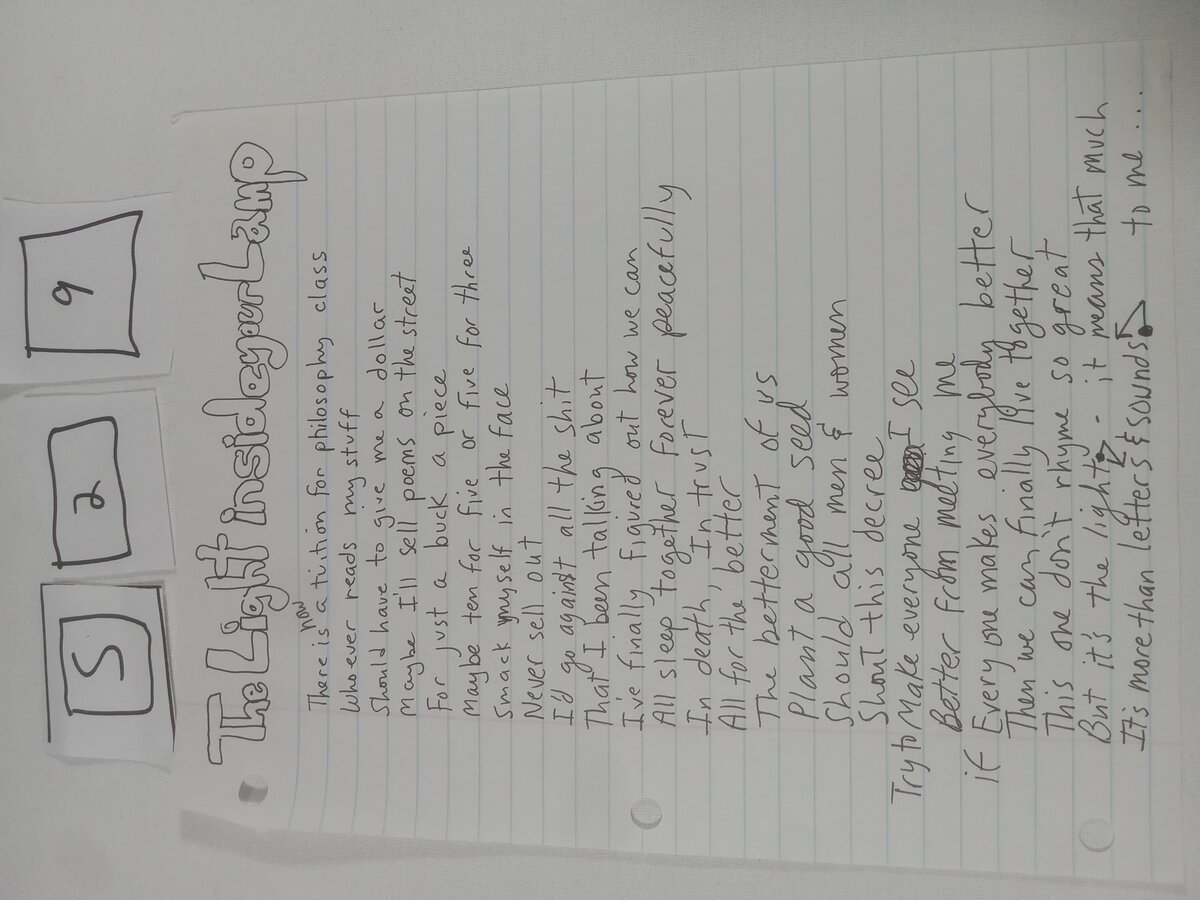 5 2 9
The Light inside yer Lamp
There is now a tuition for philosophy class
Who ever reads my stuff
Should have to give me a dollar
Maybe I'll sell poems on the street
For just a buck a piece
Maybe ten for five or five for three
Smack myself in the face
Never sell out
I'd go against all the shit
That I been talking about
I've finally figured out how we can
All sleep together forever peacefully
In death, In trust
All for the better
The betterment of us
Plant a good seed
Should all men & women
Shout this decree
Try to Make everyone I see
Better from meeting me
if Every one makes everybody better
Then we can finally live together
This one don't rhyme so great
But it's the light - it means that much
It's more than letters & sounds to me ...